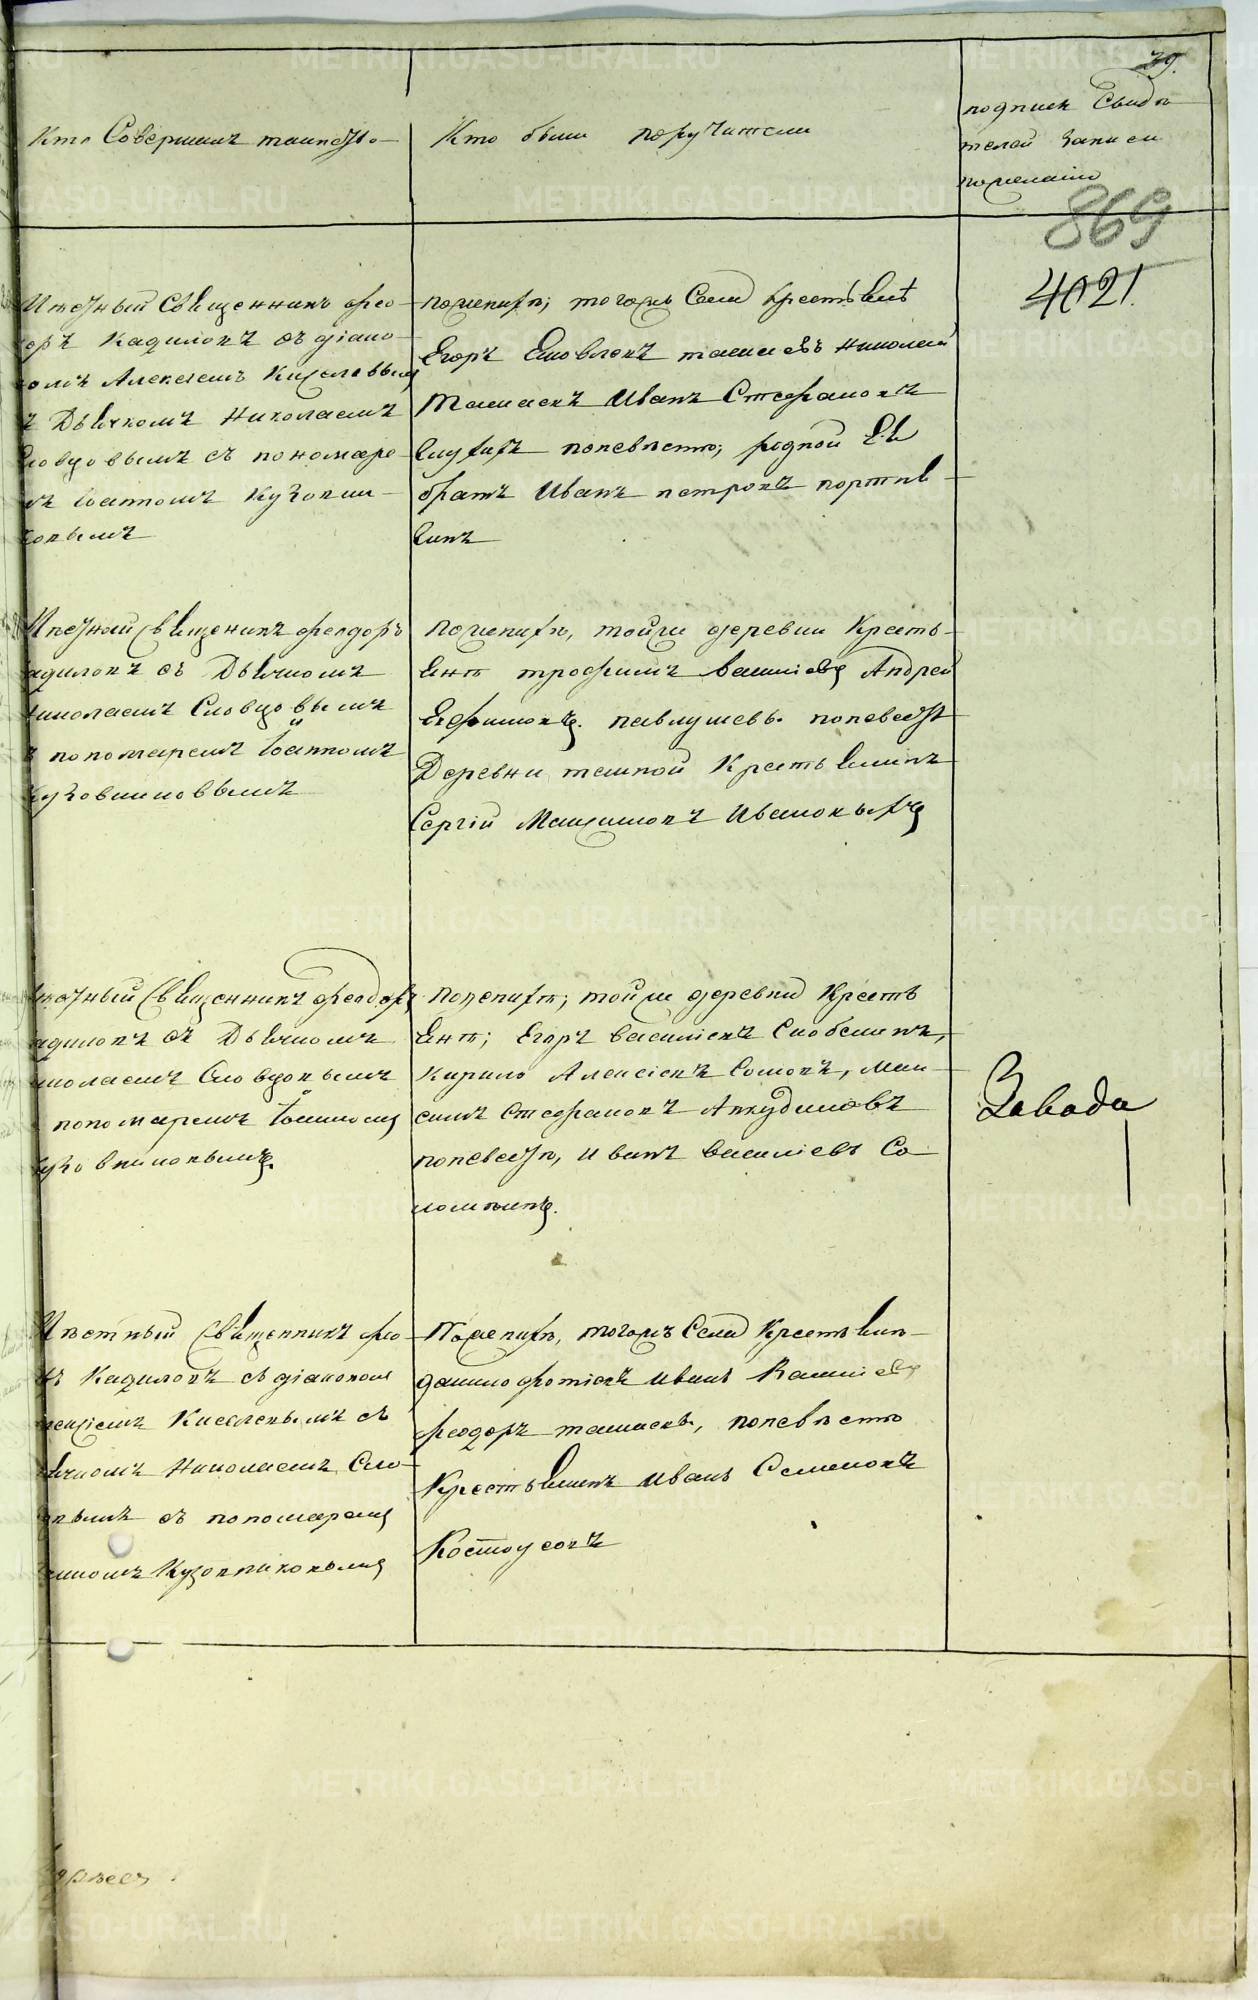 39.
Кто Совершалъ таинство
Кто были поручители
подписи Свидѣ
телей записи
по желанію
869
4021.
Мѣстный Священникъ Фео
Кадиловъ съ діако
Алексѣемъ Киселевым
Дьячкомъ Николаемъ
Словцовымъ съ пономаре
Іоанномъ Кузовни
ковымъ
по женихѣ; тогожъ Села крестьянѣ
Егоръ Яковлевъ Николай
Иванъ Стефановъ
по невѣстѣ; родной Ея
братъ Иванъ Петровъ портня
гинъ
Мѣстный священникъ Феодоръ
адиловъ съ Дьячкомъ
иколаемъ Словцовымъ
пономаремъ Іоанномъ
узовниковымъ
по женихѣ, тойже деревни Кресть
яне Трофимъ Василіевъ Андрей
Ефимовъ. по невѣстѣ
Деревни Крестьянинъ
Сергій Максимовъ Ивановыхъ
Мѣстный Священникъ Феодоръ
адиловъ съ Дьячкомъ
иколаемъ Словцовымъ
пономаремъ Іоанномъ
узовниковымъ.
по женихѣ; тойже деревни Кресть
яне; Егоръ Василіевъ
Кирило Алексіевъ Сомовъ, Мак
симъ Стефановъ Анкудиновъ
по невестѣ, Иванъ Василіевъ Со
Завода
Мѣстный Священникъ Фео
ръ Кадиловъ съ діакономъ
лексіемъ Киселевымъ съ
ьячкомъ Николаемъ Сло
овымъ съ пономаремъ
анномъ Кузовниковымъ
По женихѣ, тогожъ Села Крестьяне
Данило Фотіевъ Иванъ Василіевъ
Феодоръ по невѣстѣ
Крестьянинъ Иванъ Семеновъ
Костоусовъ